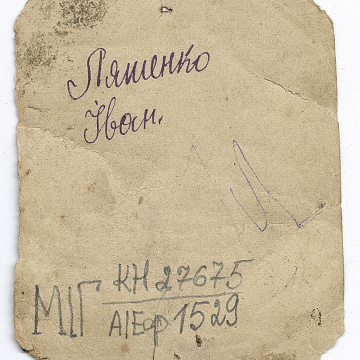 Ляшенко
Іван.
КН 27675
МІГ
АІЕФ 1529